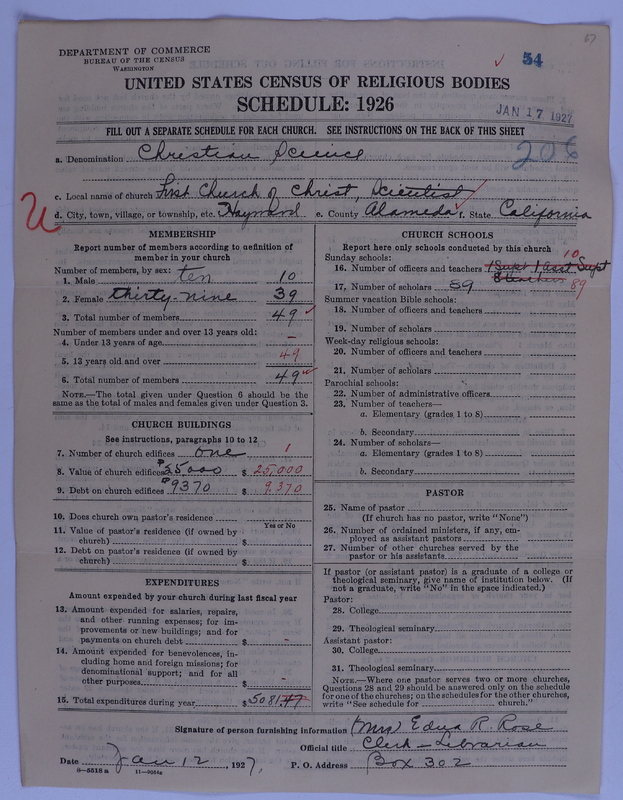 57
DEPARTMENT OF COMMERCE
BUREAU OF THE CENSUS
WASHINGTON
54
UNITED STATES CENSUS OF RELIGIOUS BODIES
SCHEDULE: 1926
JAN 17 1927
FILL OUT A SEPARATE SCHEDULE FOR EACH CHURCH. SEE INSTRUCTIONS ON THE BACK OF THIS SHEET
a. Denomination Christian Science
206
c. Local name of church First Church of Christ, Scientist
d. City, town, village, or township, etc. Hayward e. County Alameda f. State California
MEMBERSHIP
Report number of members according to definition of
member in your church
Number of members, by sex:
1. Male ten 10
2. Female thirty-nine 39
3. Total number of members 49
Number of members under and over 13 years old:
4. Under 13 years of age –
5. 13 years old and over 49
6. Total number of members 49
NOTE.—The total given under Question 6 should be the
same as the total of males and females given under Question 3.
CHURCH BUILDINGS
See instructions, paragraphs 10 to 12
7. Number of church edifices one 1
8. Value of church edifices $25000 $ 25,000
9. Debt on church edifices $9370 $ 9,370
10. Does church own pastor's residence
Yes or No
11. Value of pastor's residence (if owned by
church) $
12. Debt on pastor's residence (if owned by
church) $
EXPENDITURES
Amount expended by your church during last fiscal year
13. Amount expended for salaries, repairs,
and other running expenses; for im-
provements or new buildings; and for
payments on church debt $ –
14. Amount expended for benevolences, in-
cluding home and foreign missions; for
denominational support; and for all
other purposes $ –
15. Total expenditures during year $ 5081.47
CHURCH SCHOOLS
Report here only schools conducted by this church
Sunday schools: 10
16. Number of officers and teachers 1 Supt 1 asst Supt
8 teachers
17. Number of scholars 89 89
Summer vacation Bible schools:
18. Number of officers and teachers
19. Number of scholars
Week-day religious schools:
20. Number of officers and teachers
21. Number of scholars
Parochial schools:
22. Number of administrative officers
23. Number of teachers—
a. Elementary (grades 1 to 8)
b. Secondary
24. Number of scholars—
a. Elementary (grades 1 to 8)
b. Secondary
PASTOR
25. Name of pastor
(If church has no pastor, write "None")
26. Number of ordained ministers, if any, em-
ployed as assistant pastors
27. Number of other churches served by the
pastor or his assistants
If pastor (or assistant pastor) is a graduate of a college or
theological seminary, give name of institution below. (If
not a graduate, write "No" in the space indicated.)
Pastor:
28. College
29. Theological seminary
Assistant pastor:
30. College
31. Theological seminary
NOTE.—Where one pastor serves two or more churches,
Questions 28 and 29 should be answered only on the schedule
for one of the churches; on the schedules for the other churches,
write "See schedule for church."
Signature of person furnishing information (Mrs) Edna R. Rose
Official title Clerk – Librarian
Date Jan 12, 1927. P. O. Address Box 302
8—5518 a 11—9034a